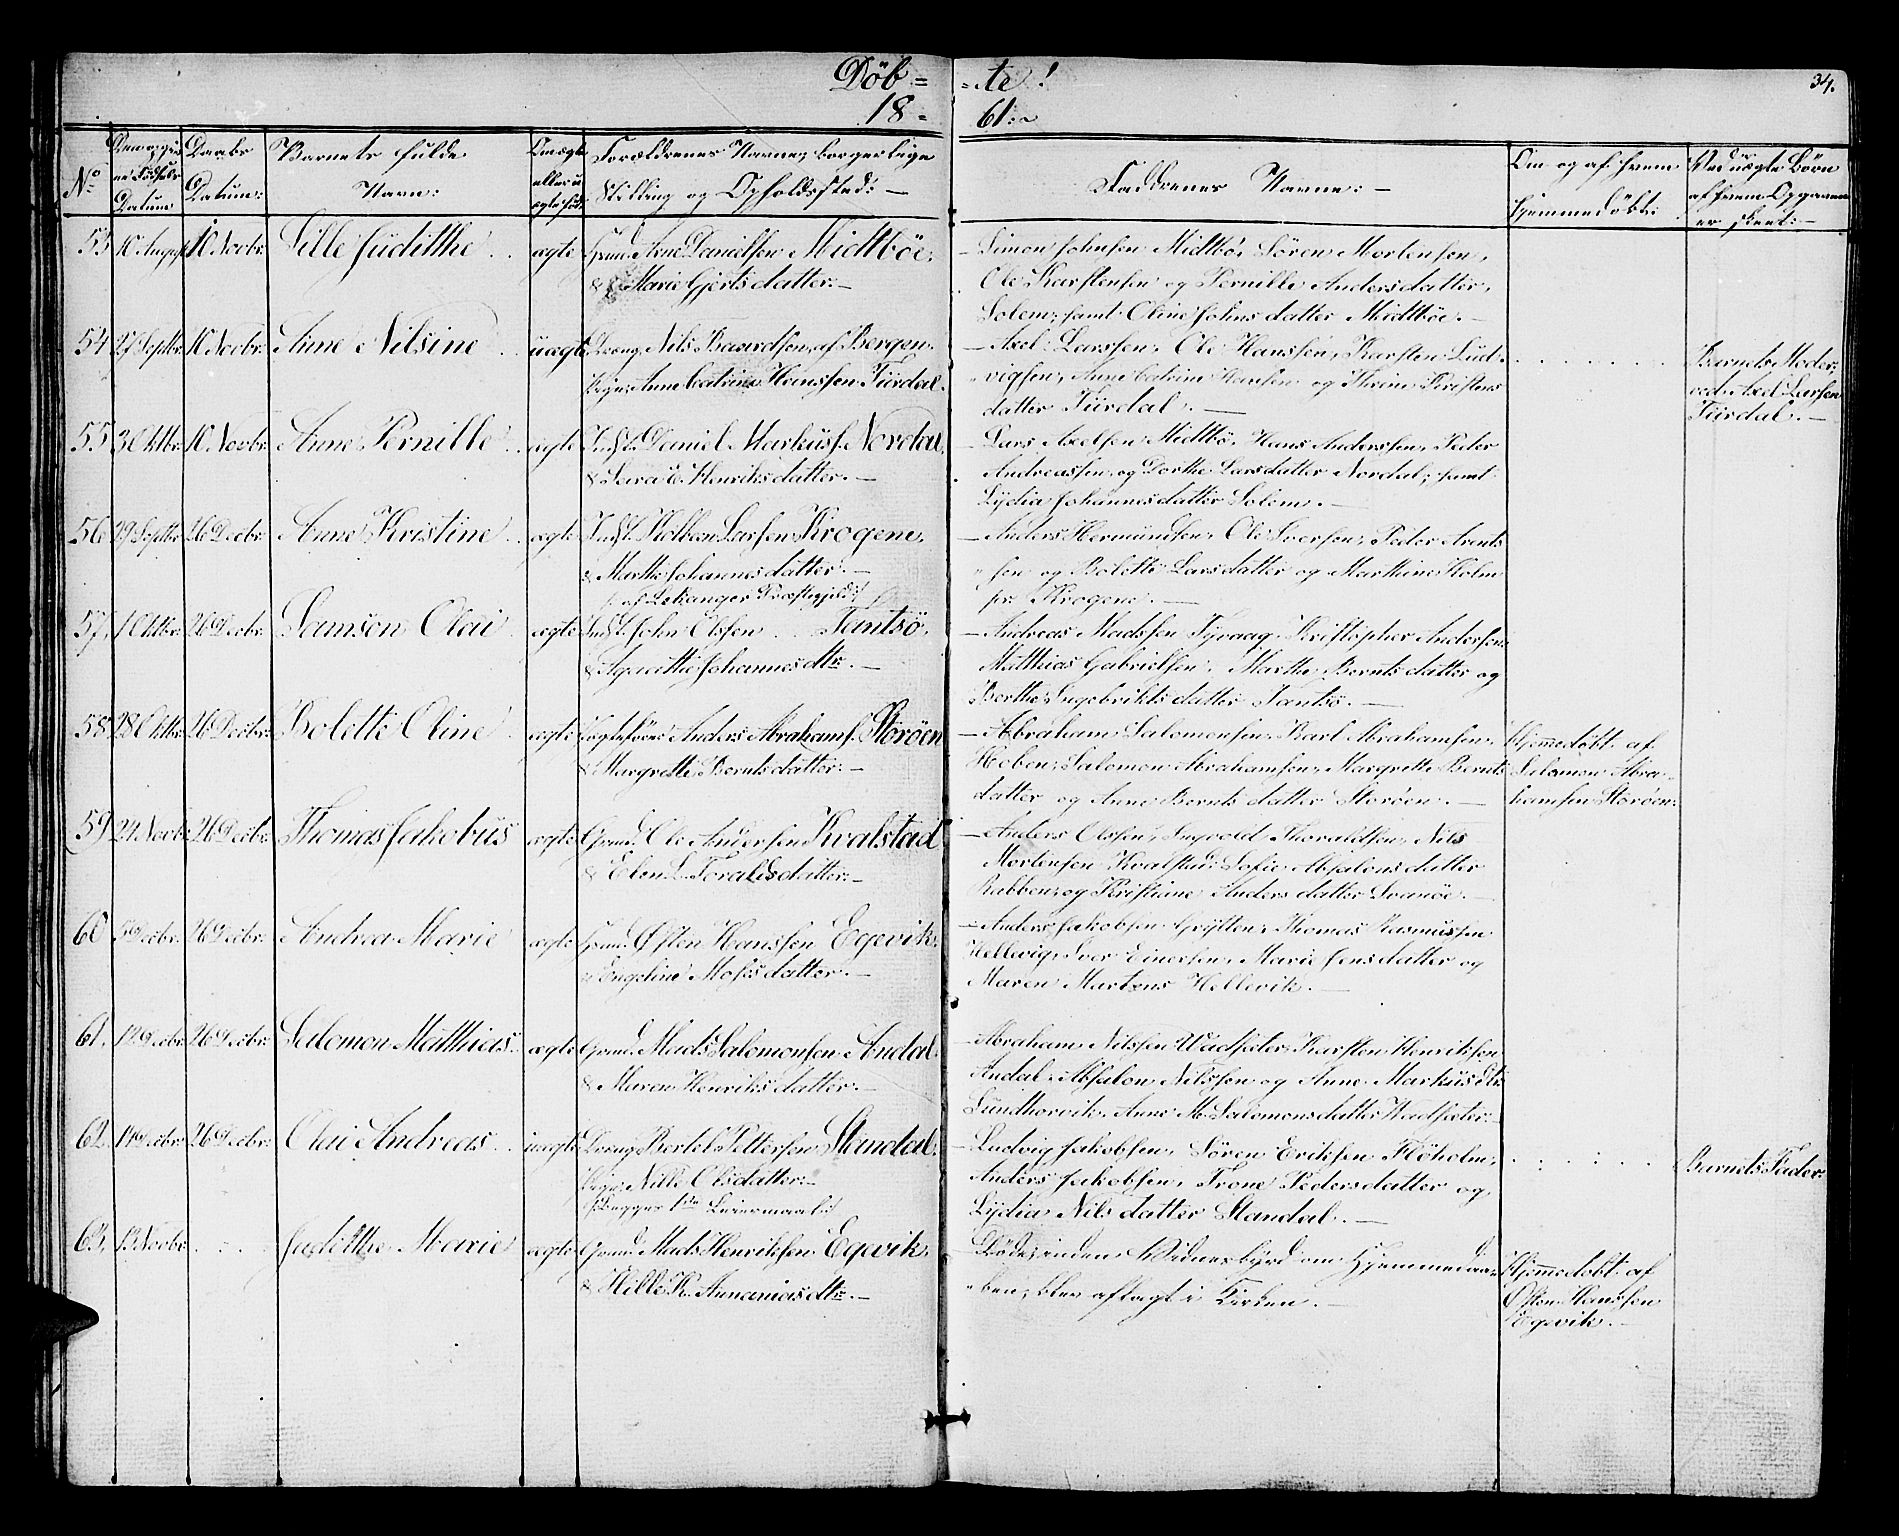 Döb= =te!
34.
18= 61.
No
Datum
Daabs Datum:
Barnets fulde Navn:
Om ægte eller uægte fød:
Forældrenes Navne, borgerlige Stilling og Opholdssted:
Faddrenes Navne:
Om og af hvem hjemmedöbt:
Ved uægte Børn af hvem Opgaven er skeet:
53 10 August 10 Novbr. Sille Judithe ægte Grmd. Arne Danielsen Midtböe,
& Marie Gjertsdatter.
Simon Johnsen Midtbö, Sören Mortensen,
Ole Karstensen og Pernille Andersdatter,
Solem, samt Oline Johnsdatter Midtböe.
54 27 Septbr. 10 Novbr. Anne Nilsine uægte Dreng Nils Baardsen, af Bergen.
Pige Anne Catrine Hanssen Türdal.
Axel Larssen, Ole Hanssen, Karsten Lud-
vigsen, Anne Catrine Hansen og Thrine Kristens
datter Türdal.
Barnets Moder,
ved Axel Larsen
Türdal.
55 3 Oktbr. 10 Novbr. Anne Pernille ægte Inst. Daniel Markus. Nordal,
& Lovi E. Henriksdatter.
Lars Axelsen Midtbö, Hans Anderssen, Peder
Andreassen og Dorthe Larsdatter Nordal, samt
Lydia Johannesdatter Solem.
56 29 Septbr 26 Decbr. Anne Kristine ægte Inst. Kolbeen Larsen Krogene,
& Marthe Johannesdatter.
/: af Lekanger Præstegjeld :/
Anders Hermundsen, Ole Iversen, Peder Arents
sen og Bolette Larsdatter og Marthine Holm
pr. Krogene.
57, 1 Oktbr. 26 Decbr. Samson Olai ægte Inst. John Olsen Tantsö.
& Agathe Johannesdtr.
Andreas Madssen Tyvaag, Kristopher Andersen,
Matthias Gabrielsen, Marthe Berntsdatter og
Berthe Ingebriktsdatter Tantsö.
58 28 Oktbr. 26 Decbr. Bolette Oline ægte Anders Abrahams. Storöen
& Margrethe Berntsdatter.
Abraham Salomonsen, Karl Abrahamsen,
Hoben, Salomon Abrahamsen, Margrethe Bernts
datter og Anne Berntsdatter Storöen.
Hjemedöbt af
Salomon Abra-
hamsen Storöen.
59 24 Novbr. 26 Decbr. Thomas Jakobus ægte Grmd. Ole Andersen Kvalstad
& Elen L. Toraldsdatter.
Anders Olsen, Ingvold Thoraldsen, Nils
Mortensen Kvalstad, Sofie Absalonsdatter
Rabben, og Kristiane Andersdatter Svanöe.
60 5 Decbr. 26 Decbr. Andrea Marie ægte Grmd. Østen Hanssen Egevik,
& Engeline Mosesdatter.
Anders Jakobsen Gryten, Thomas Rasmussen
Hellevig, Iver Einersen, Marie Jensdatter og
Maren Martens Hellevik.
61. 12 Decbr. 26 Decbr. Salomon Matthias ægte Grmd. Mads Salomonsen Andal,
& Maren Henriksdatter.
Abraham Nilssen Wadsæter, Karsten Henriksen
Andal, Absalon Nilssen og Anne Markusdtr.
Sundhorvik, Anne M. Salomonsdatter Wadsæter.
62. 14 Decbr. 26 Decbr. Olai Andreas uægte Dreng Bertel Pettersen Standal,
Pige Nille Olsdatter.
/: Begges 1ste Leiermaal :/
Ludvig Jakobsen, Sören Eriksen Flöholm,
Anders Jakobsen, Trone Pedersdatter og
Lydia Nilsdatter Standal.
Barnets Fader
63. 13 Novbr. Judithe Marie ægte Grmd. Mads Henriksen Egevik,
& Hille K. Annaniasdtr.
Döde, inden Vidnesbyrd om Hjemmedaa-
ben, blev aflagt i Kirken.
Hjemedobt af
Østen Hanssen
Egevik.